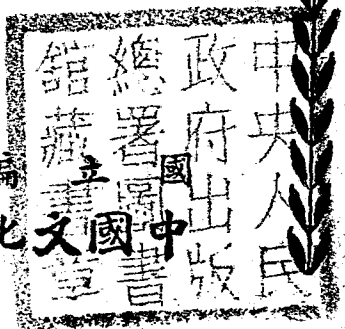 中央人民
政府出版
總署圖書
館藏書章
國立編
中國文化